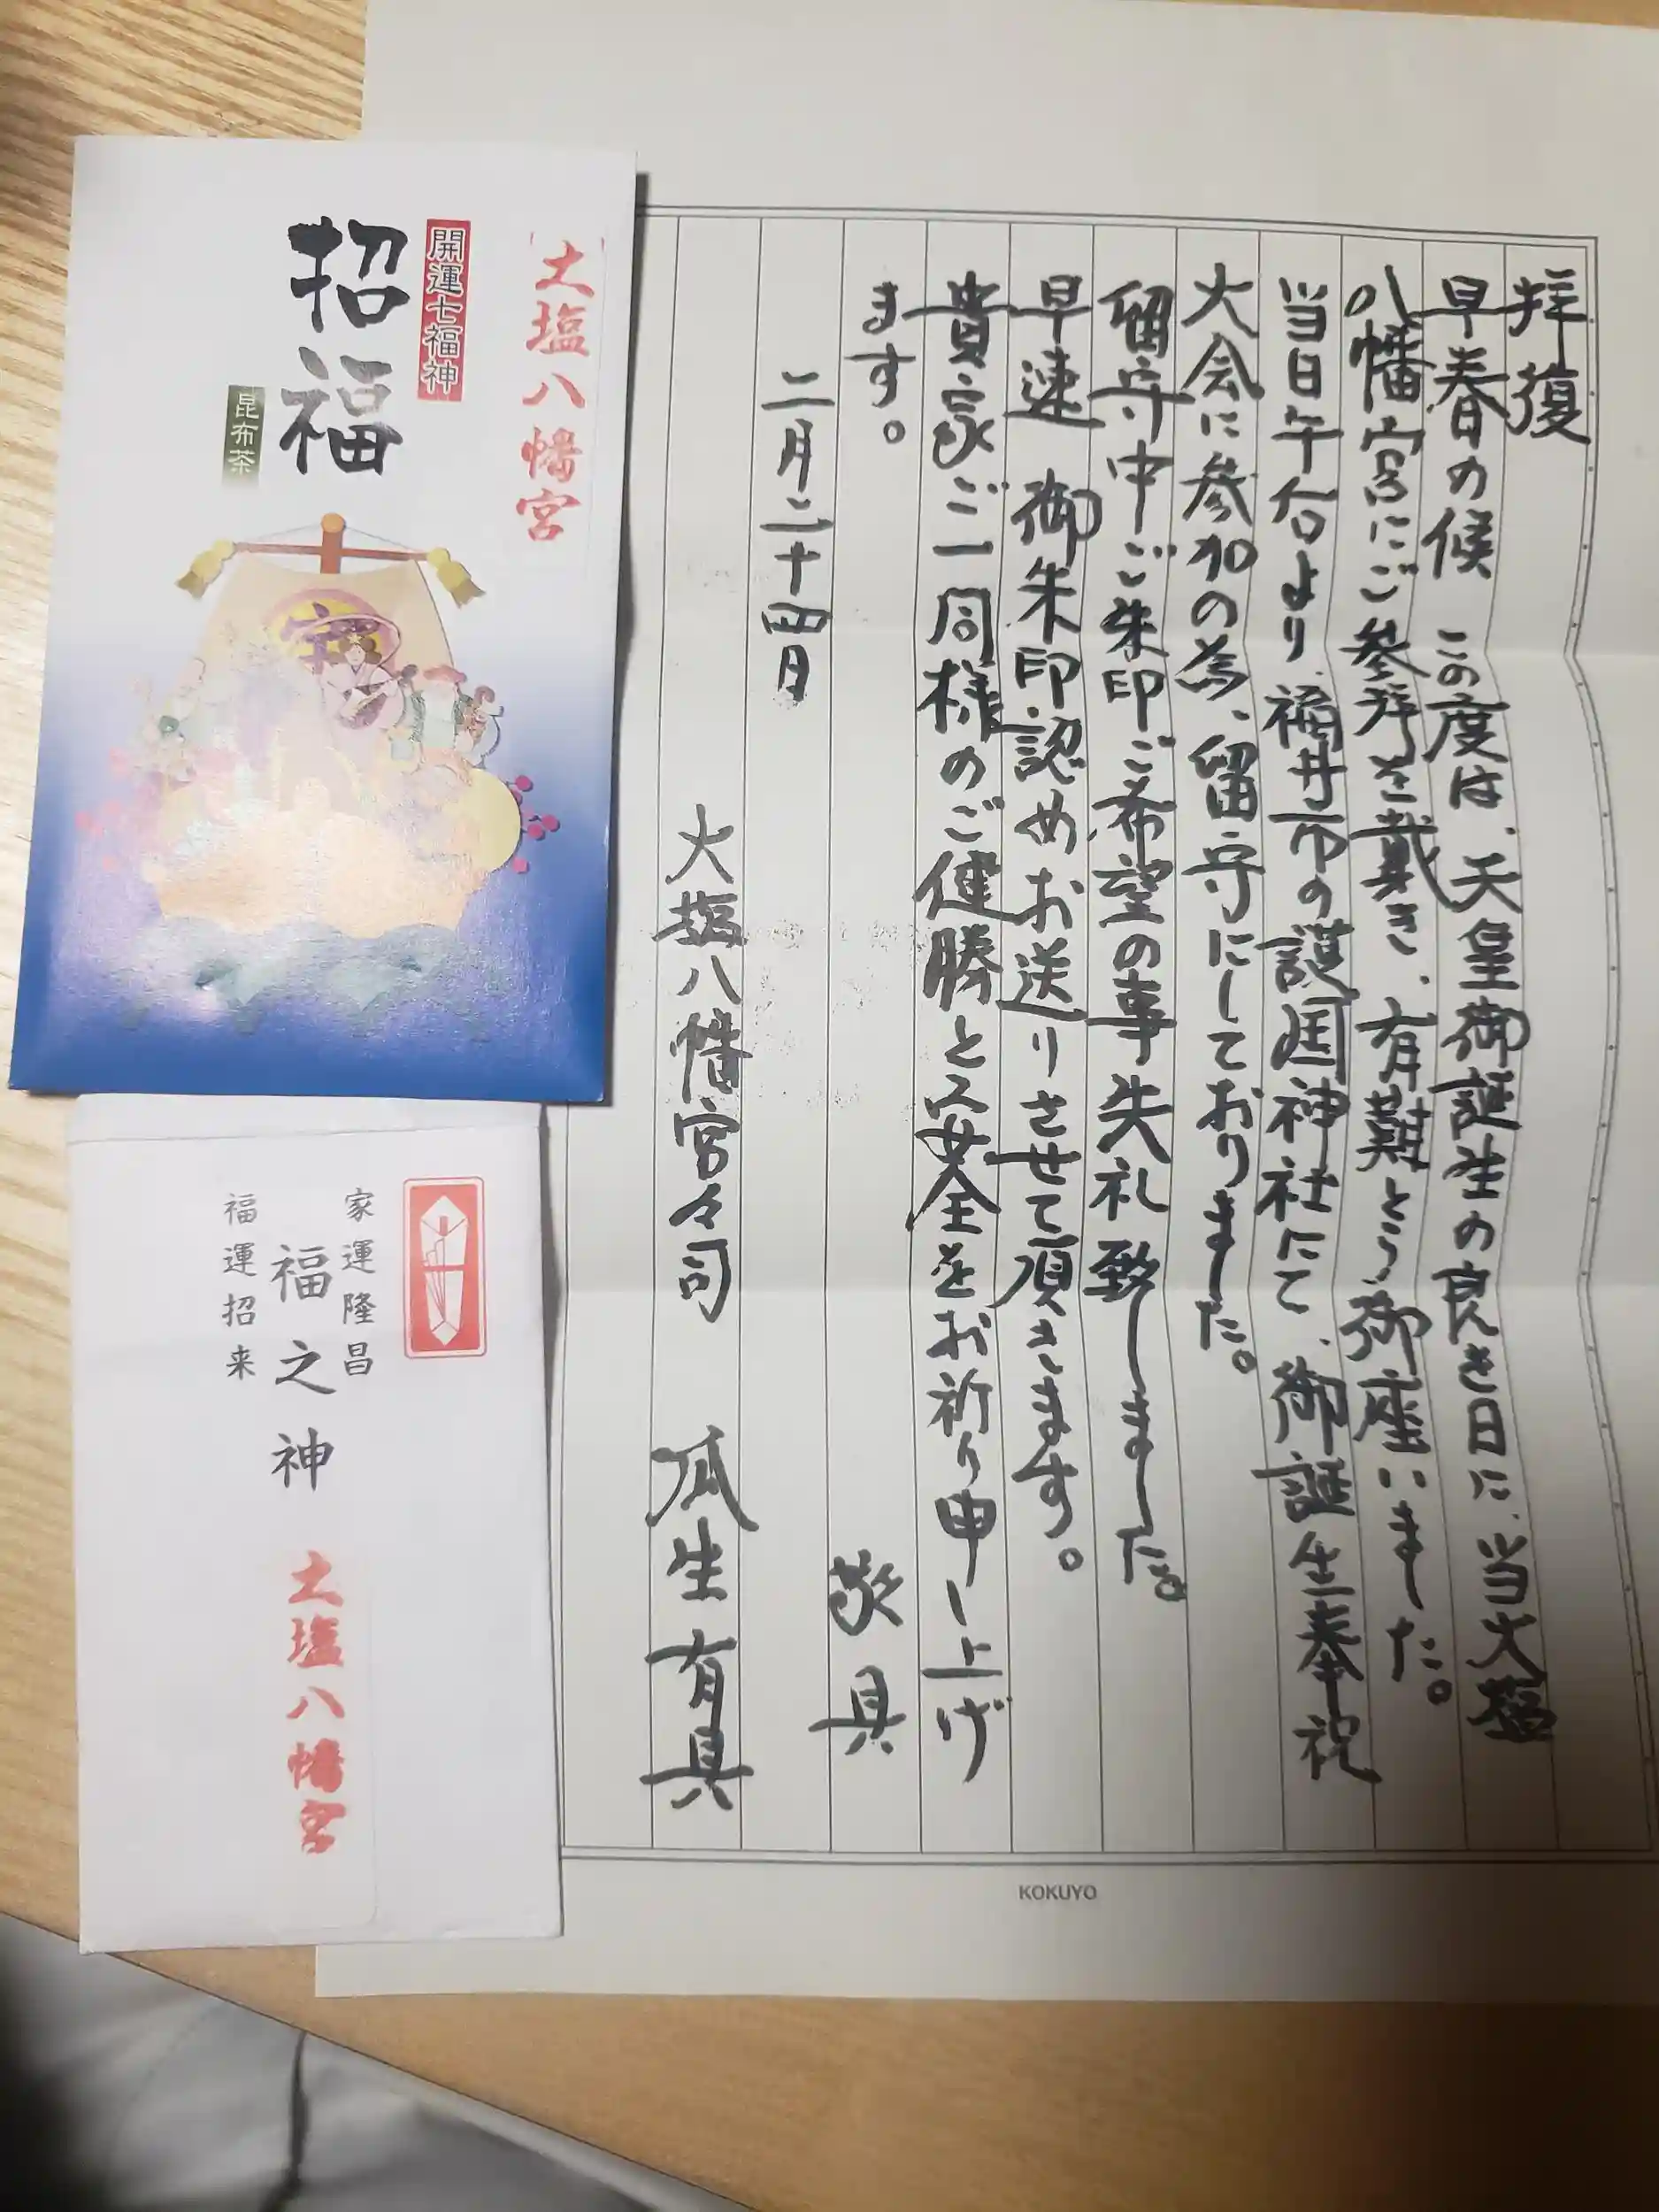 拝復
早春の候 この度は、天皇御誕生の良き日に、当大塩
八幡宮にご参拝を戴き、有難とう御座いました。
当日午后より、福井市の護国神社にて、御誕生奉祝
大会に参加の為、留守にしておりました。
留守中ご朱印ご希望の事失礼致しました。
早速 御朱印認めお送りさせて頂きます。
貴家ご一同様のご健勝と安全をお祈り申し上げ
ます。
敬具
二月二十四日
大塩八幡宮々司 瓜生有具
KOKUYO
大塩八幡宮
開運七福神
招福
昆布茶
宝
家運隆昌
福之神
福運招来
大塩八幡宮